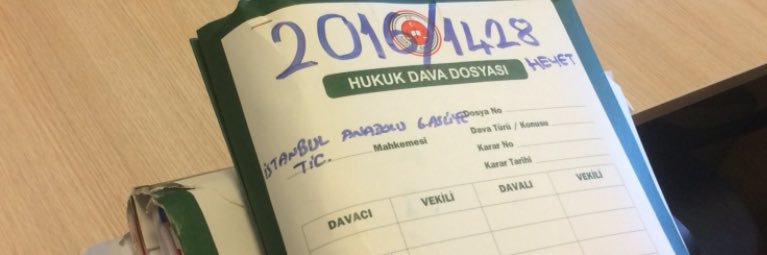 2016/1428
HEYET
HUKUK DAVA DOSYASI
İSTANBUL ANADOLU 6.ASLİYE
TİC. Mahkemesi
Dosya No
Dava Türü / Konusu
Karar No
Karar Tarihi
DAVACI VEKİLİ DAVALI VEKİLİ